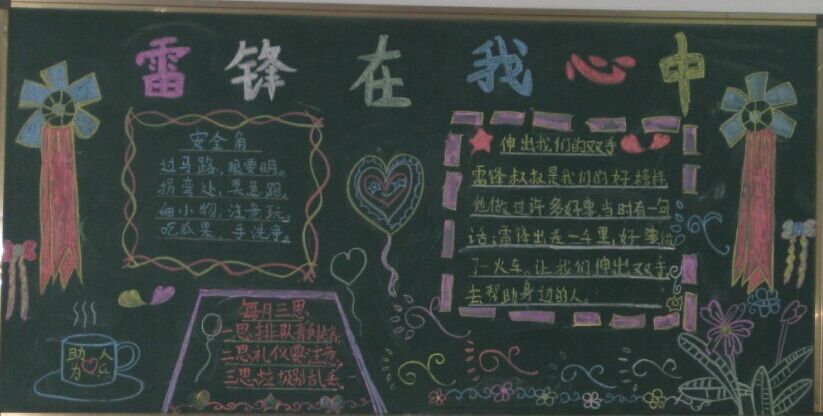 雷锋在我心中
安全角
过马路，眼要明。
拐弯处，
细小物，注意玩。
吃瓜果，手洗净。
伸出我们的双手
雷锋叔叔是我们的好榜样
他做过许多好事，当时有一句
话：雷锋出差一千里，好事做
了一火车。让我们伸出双手
去帮助身边的人。
每月三思
一思排队
二思礼仪要注意
三思垃圾别乱丢
助人
为乐